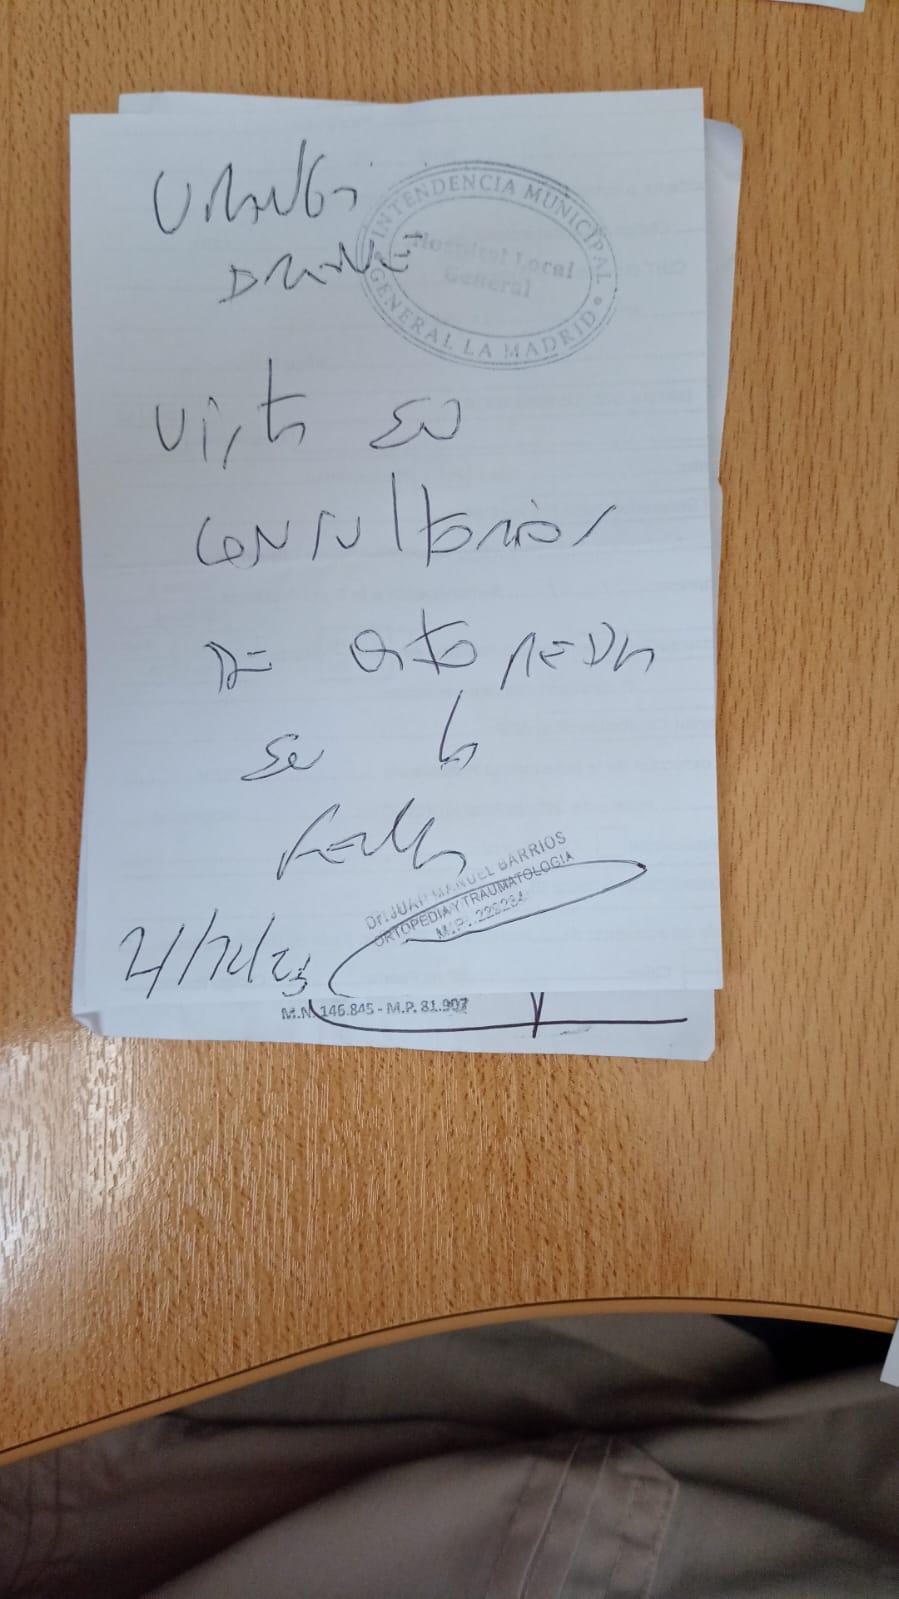 INTENDENCIA MUNICIPAL
Hospital Local
General
GENERAL LA MADRID
Vista en
consultorios
DE ortopedia
en la
fecha
Dr. JUAN MANUEL BARRIOS
ORTOPEDIA Y TRAUMATOLOGIA
M.P.
M.N. 146.845 - M.P. 81.907